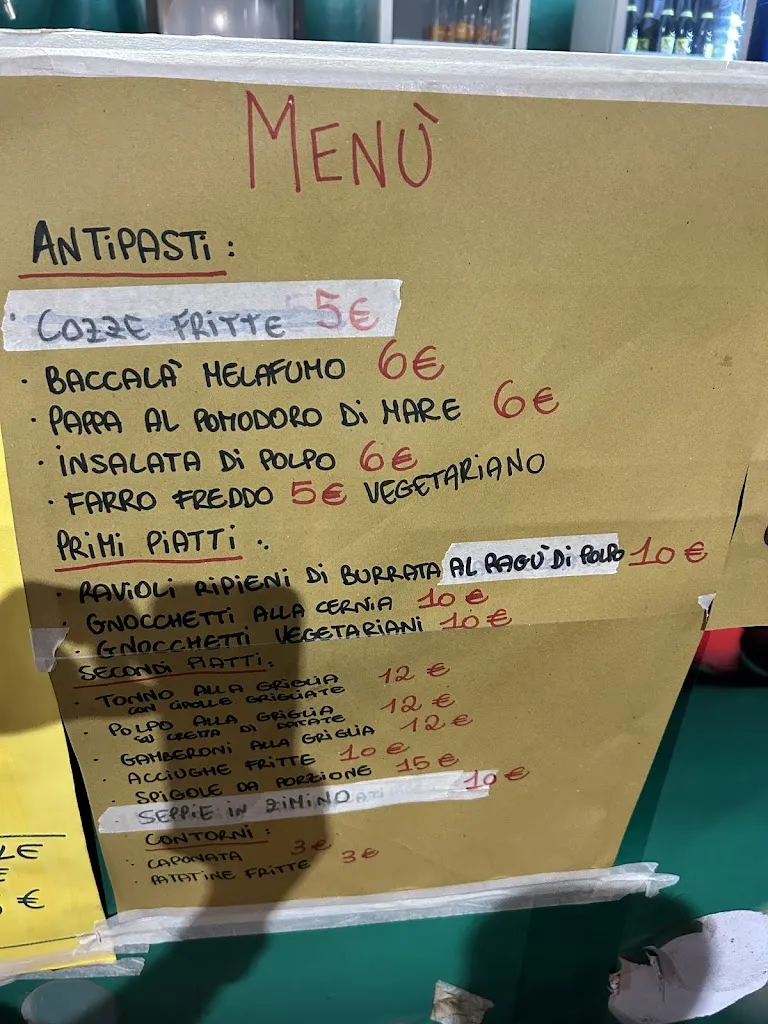 MENÙ
ANTIPASTI:
· COZZE FRITTE 5€
· BACCALÀ MELAFUMO 6€
· PAPPA AL POMODORO DI MARE 6€
· INSALATA DI POLPO 6€
· FARRO FREDDO 5€ VEGETARIANO
PRIMI PIATTI:
· RAVIOLI RIPIENI DI BURRATA AL RAGÙ DI POLPO 10€
· GNOCCHETTI ALLA CERNIA 10€
· GNOCCHETTI VEGETARIANI 10€
SECONDI PIATTI:
· TONNO ALLA GRIGLIA 12€
CON CIPOLLE GRIGLIATE
· POLPO ALLA GRIGLIA 12€
SU CREMA DI PATATE
· GAMBERONI ALLA GRIGLIA 12€
· ACCIUGHE FRITTE 10€
· SPIGOLE DA PORZIONE 15€
· SEPPIE IN ZIMINO 10€
CONTORNI:
· CAPONATA 3€
· PATATINE FRITTE 3€
LE
€